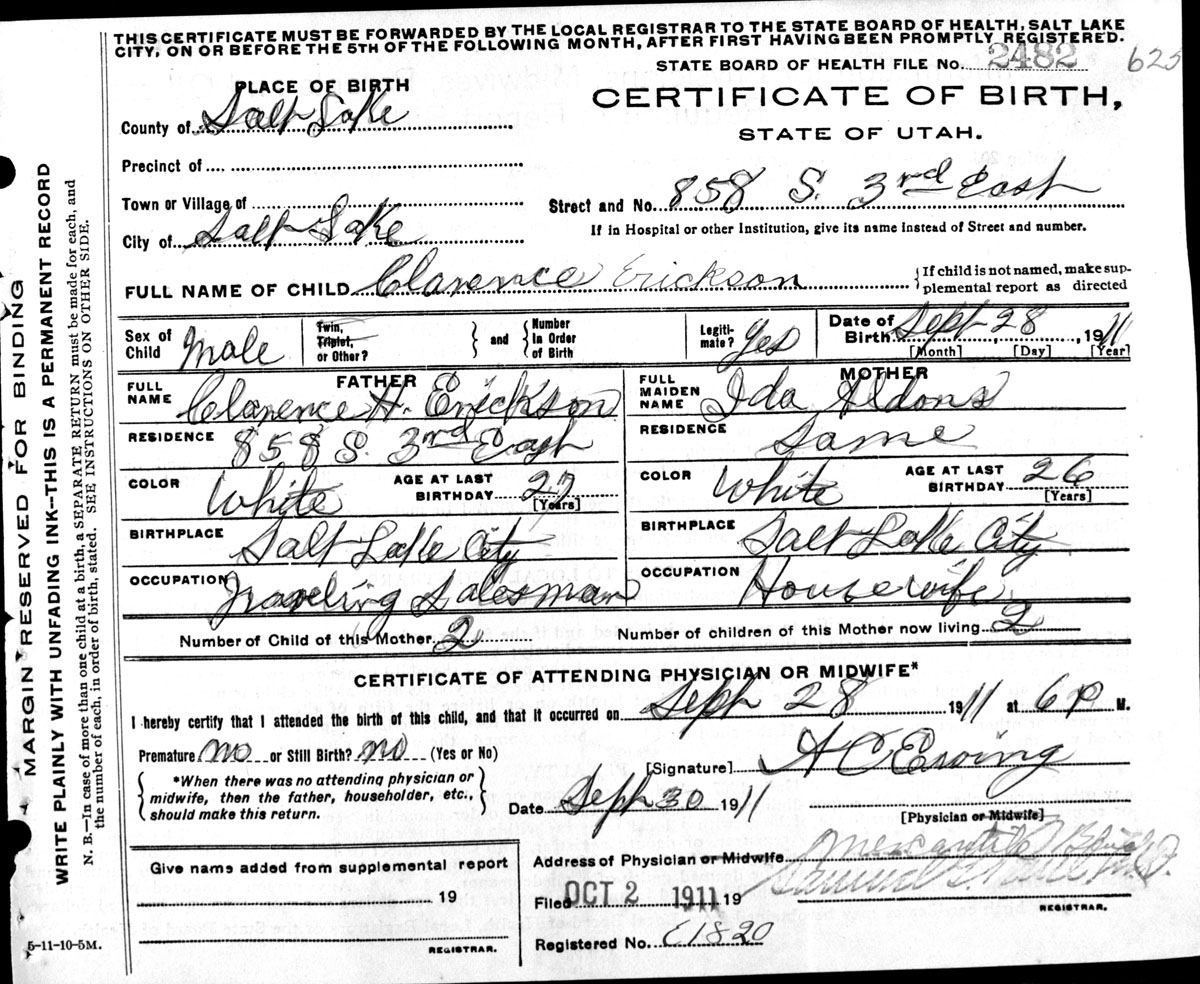 THIS CERTIFICATE MUST BE FORWARDED BY THE LOCAL REGISTRAR TO THE STATE BOARD OF HEALTH, SALT LAKE
CITY, ON OR BEFORE THE 5TH OF THE FOLLOWING MONTH, AFTER FIRST HAVING BEEN PROMPTLY REGISTERED.
STATE BOARD OF HEALTH FILE No. 2482 625
PLACE OF BIRTH
CERTIFICATE OF BIRTH,
STATE OF UTAH.
County of Salt Lake
Precinct of
Town or Village of
Street and No. 858 S. 3rd East
City of Salt Lake
If in Hospital or other Institution, give its name instead of Street and number.
FULL NAME OF CHILD Clarence Erickson {If child is not named, make sup-
plemental report as directed
Sex of Child Male Twin, Triplet, or Other? } and { Number in Order of Birth Legiti-mate? Yes Date of Birth Sept 28, 1911
[Month] [Day] [Year]
FATHER MOTHER
FULL NAME Clarence H. Erickson FULL MAIDEN NAME Ida Aldons
RESIDENCE 858 S. 3rd East RESIDENCE Same
COLOR White AGE AT LAST BIRTHDAY 27 [Years] COLOR White AGE AT LAST BIRTHDAY 26 [Years]
BIRTHPLACE Salt Lake City BIRTHPLACE Salt Lake City
OCCUPATION Traveling Salesman OCCUPATION Housewife
Number of Child of this Mother 2 Number of children of this Mother now living 2
CERTIFICATE OF ATTENDING PHYSICIAN OR MIDWIFE*
I hereby certify that I attended the birth of this child, and that it occurred on Sept 28 1911 at 6 P M.
Premature no or Still Birth? no (Yes or No)
[Signature] A C Ewing
{ *When there was no attending physician or
midwife, then the father, householder, etc.,
should make this return. }
Date Sept 30 1911
[Physician or Midwife]
Give name added from supplemental report
19
REGISTRAR.
Address of Physician or Midwife
Filed OCT 2 1911 19
REGISTRAR.
Registered No. E1820
5-11-10-5M.
MARGIN RESERVED FOR BINDING
WRITE PLAINLY WITH UNFADING INK—THIS IS A PERMANENT RECORD
N. B.—In case of more than one child at a birth, a SEPARATE RETURN must be made for each, and
the number of each, in order of birth, stated. SEE INSTRUCTIONS ON OTHER SIDE.